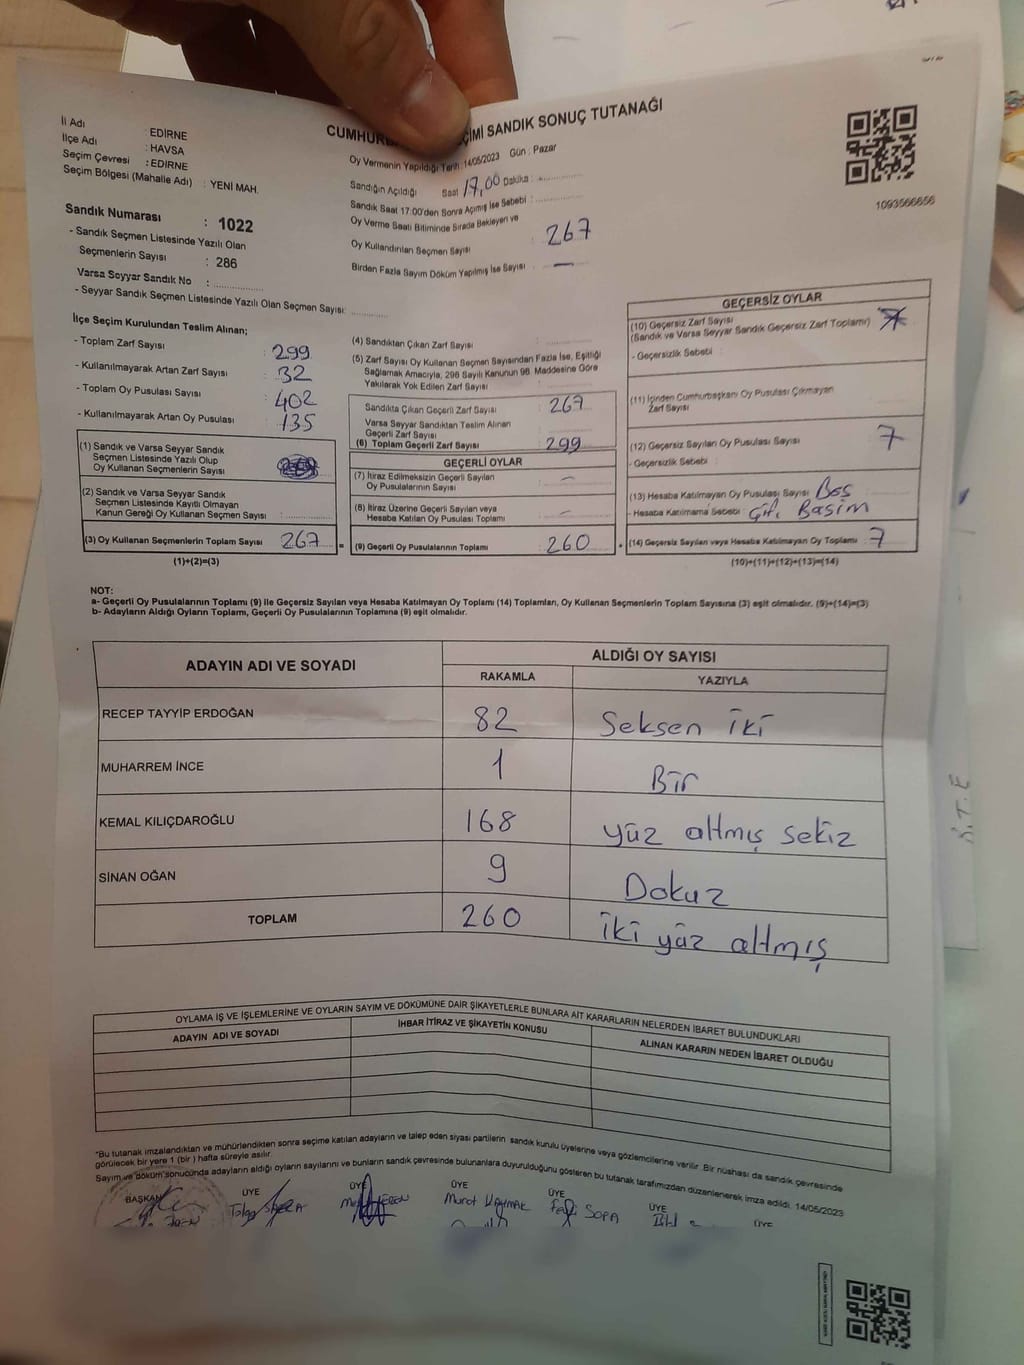 CUMHUR
ÇİMİ SANDIK SONUÇ TUTANAĞI
İl Adı : EDİRNE
İlçe Adı : HAVSA
Seçim Çevresi : EDİRNE
Seçim Bölgesi (Mahalle Adı) : YENİ MAH.
Oy Vermenin Yapıldığı Tarih 14/05/2023 Gün : Pazar
Sandığın Açıldığı Saat 17,00 Dakika :
Sandık Saat 17:00'den Sonra Açılmış İse Sebebi :
Oy Verme Saati Bitiminde Sırada Bekleyen ve
Oy Kullandırılan Seçmen Sayısı : 267
Birden Fazla Sayım Döküm Yapılmış İse Sayısı : —
1093566656
Sandık Numarası : 1022
- Sandık Seçmen Listesinde Yazılı Olan
Seçmenlerin Sayısı : 286
Varsa Seyyar Sandık No :
- Seyyar Sandık Seçmen Listesinde Yazılı Olan Seçmen Sayısı:
İlçe Seçim Kurulundan Teslim Alınan;
- Toplam Zarf Sayısı : 299
- Kullanılmayarak Artan Zarf Sayısı : 32
- Toplam Oy Pusulası Sayısı : 402
- Kullanılmayarak Artan Oy Pusulası : 135
(1) Sandık ve Varsa Seyyar Sandık
Seçmen Listesinde Yazılı Olup
Oy Kullanan Seçmenlerin Sayısı
(2) Sandık ve Varsa Seyyar Sandık
Seçmen Listesinde Kayıtlı Olmayan
Kanun Gereği Oy Kullanan Seçmen Sayısı :
(3) Oy Kullanan Seçmenlerin Toplam Sayısı 267
(1)+(2)=(3)
(4) Sandıktan Çıkan Zarf Sayısı :
(5) Zarf Sayısı Oy Kullanan Seçmen Sayısından Fazla İse, Eşitliği
Sağlamak Amacıyla, 298 Sayılı Kanunun 98. Maddesine Göre
Yakılarak Yok Edilen Zarf Sayısı :
Sandıkta Çıkan Geçerli Zarf Sayısı : 267
Varsa Seyyar Sandıktan Teslim Alınan
Geçerli Zarf Sayısı :
(6) Toplam Geçerli Zarf Sayısı : 299
GEÇERLİ OYLAR
(7) İtiraz Edilmeksizin Geçerli Sayılan
Oy Pusulalarının Sayısı : —
(8) İtiraz Üzerine Geçerli Sayılan veya
Hesaba Katılan Oy Pusulası Toplamı : —
(9) Geçerli Oy Pusulalarının Toplamı : 260
GEÇERSİZ OYLAR
(10) Geçersiz Zarf Sayısı
(Sandık ve Varsa Seyyar Sandık Geçersiz Zarf Toplamı)
- Geçersizlik Sebebi :
(11) İçinden Cumhurbaşkanı Oy Pusulası Çıkmayan
Zarf Sayısı
(12) Geçersiz Sayılan Oy Pusulası Sayısı : 7
- Geçersizlik Sebebi :
(13) Hesaba Katılmayan Oy Pusulası Sayısı Boş
- Hesaba Katılmama Sebebi : Çift Basim
(14) Geçersiz Sayılan veya Hesaba Katılmayan Oy Toplamı : 7
(10)+(11)+(12)+(13)=(14)
NOT:
a- Geçerli Oy Pusulalarının Toplamı (9) ile Geçersiz Sayılan veya Hesaba Katılmayan Oy Toplamı (14) Toplamları, Oy Kullanan Seçmenlerin Toplam Sayısına (3) eşit olmalıdır. (9)+(14)=(3)
b- Adayların Aldığı Oyların Toplam, Geçerli Oy Pusulalarının Toplamına (9) eşit olmalıdır.
ADAYIN ADI VE SOYADI
ALDIĞI OY SAYISI
RAKAMLA YAZIYLA
RECEP TAYYİP ERDOĞAN 82 Seksen iki
MUHARREM İNCE 1 Bir
KEMAL KILIÇDAROĞLU 168 yüz altmış sekiz
SİNAN OĞAN 9 Dokuz
TOPLAM 260 iki yüz altmış
OYLAMA İŞ VE İŞLEMLERİNE VE OYLARIN SAYIM VE DÖKÜMÜNE DAİR ŞİKAYETLERLE BUNLARA AİT KARARLARIN NELERDEN İBARET BULUNDUKLARI
ADAYIN ADI VE SOYADI
İHBAR İTİRAZ VE ŞİKAYETİN KONUSU
ALINAN KARARIN NEDEN İBARET OLDUĞU
*Bu tutanak imzalandıktan ve mühürlendikten sonra seçime katılan adayların ve talep eden siyasi partilerin sandık kurulu üyelerine veya gözlemcilerine verilir. Bir nüshası da sandık çevresinde
görülecek bir yere 1 (bir ) hafta süreyle asılır.
Sayım ve döküm sonucunda adayların aldığı oyların sayılarını ve bunların sandık çevresinde bulunanlara duyurulduğunu gösteren bu tutanak tarafımızdan düzenlenerek imza edildi. 14/05/2023
BAŞKAN ÜYE ÜYE ÜYE ÜYE ÜYE ÜYE
Murat KAYMAK
SOPA